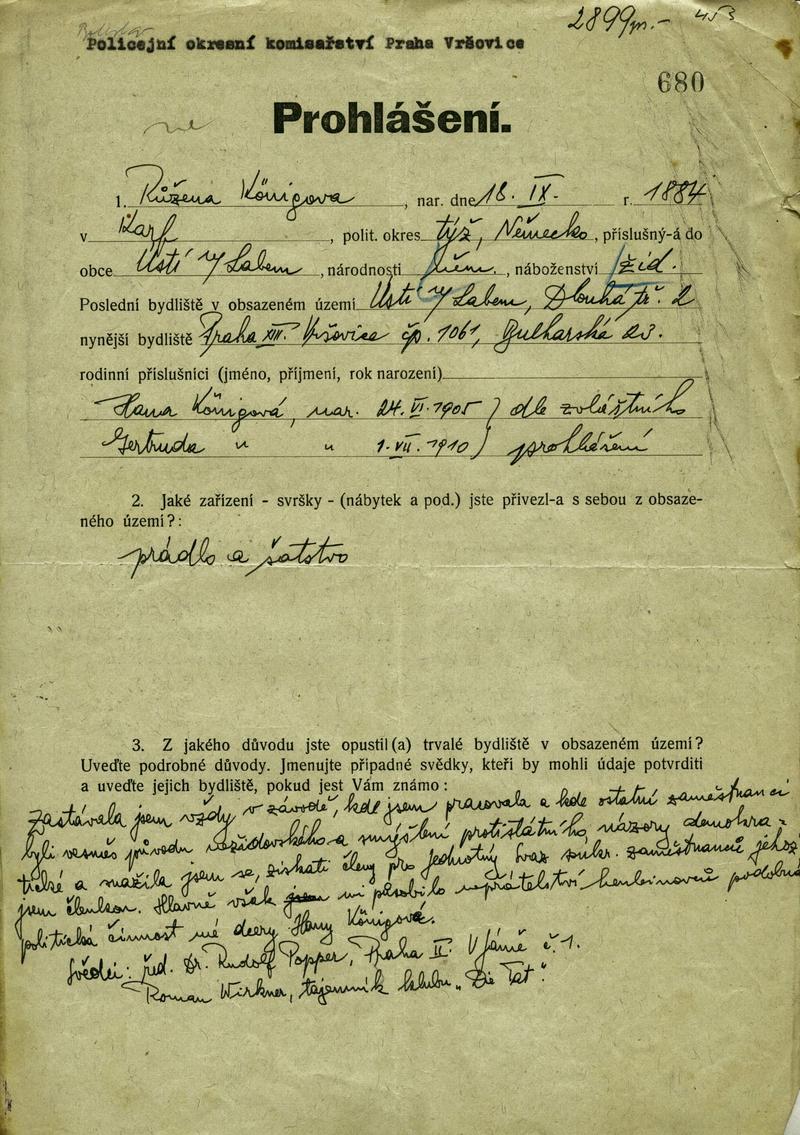 2899m.- 453
Policejní okresní komisařství Praha Vršovice
680
Prohlášení.
ne
1. Růžena Königova, nar. dne 18. IX. r. 1884
v Karf, polit. okres týž, Německo, příslušný-á do
obce Ústí n/Labem, národnosti něm., náboženství žid.
Poslední bydliště v obsazeném území Ústí n/Labem, Dlouhá tř. 2
nynější bydliště Praha XIII. Vršovice čp. 1061, Bulharská 23.
rodinní příslušníci (jméno, příjmení, rok narození)
Hana Königová, nar. 24. VI. 1905 ) dle zvláštního
Gertruda " " 1. VII. 1910 ) prohlášení
2. Jaké zařízení - svršky - (nábytek a pod.) jste přivezl-a s sebou z obsaze-
ného území?:
prádlo a šatstvo
3. Z jakého důvodu jste opustil(a) trvalé bydliště v obsazeném území?
Uveďte podrobné důvody. Jmenujte případné svědky, kteří by mohli údaje potvrditi
a uveďte jejich bydliště, pokud jest Vám známo:
Zastávala jsem vždy v závodě, kde jsem pracovala a kde ostatní zaměstnanci
byli vesměs původu nežidovského a smýšlení protistátního, názory demokra-
tické a snažila jsem se, získati členy pro Jednotný svaz soukr. zaměstnanců jehož
jsem členkou. Hlavně však jsem mi působilo nepřátelství henleinovců podobná
politická činnost mé dcery Hany Königové.
Svědci: řed. Dr. Rudolf Popper, Praha II. V Jámě č. 1.
Roman Wirkner, tajemník klubu "Die Tat".